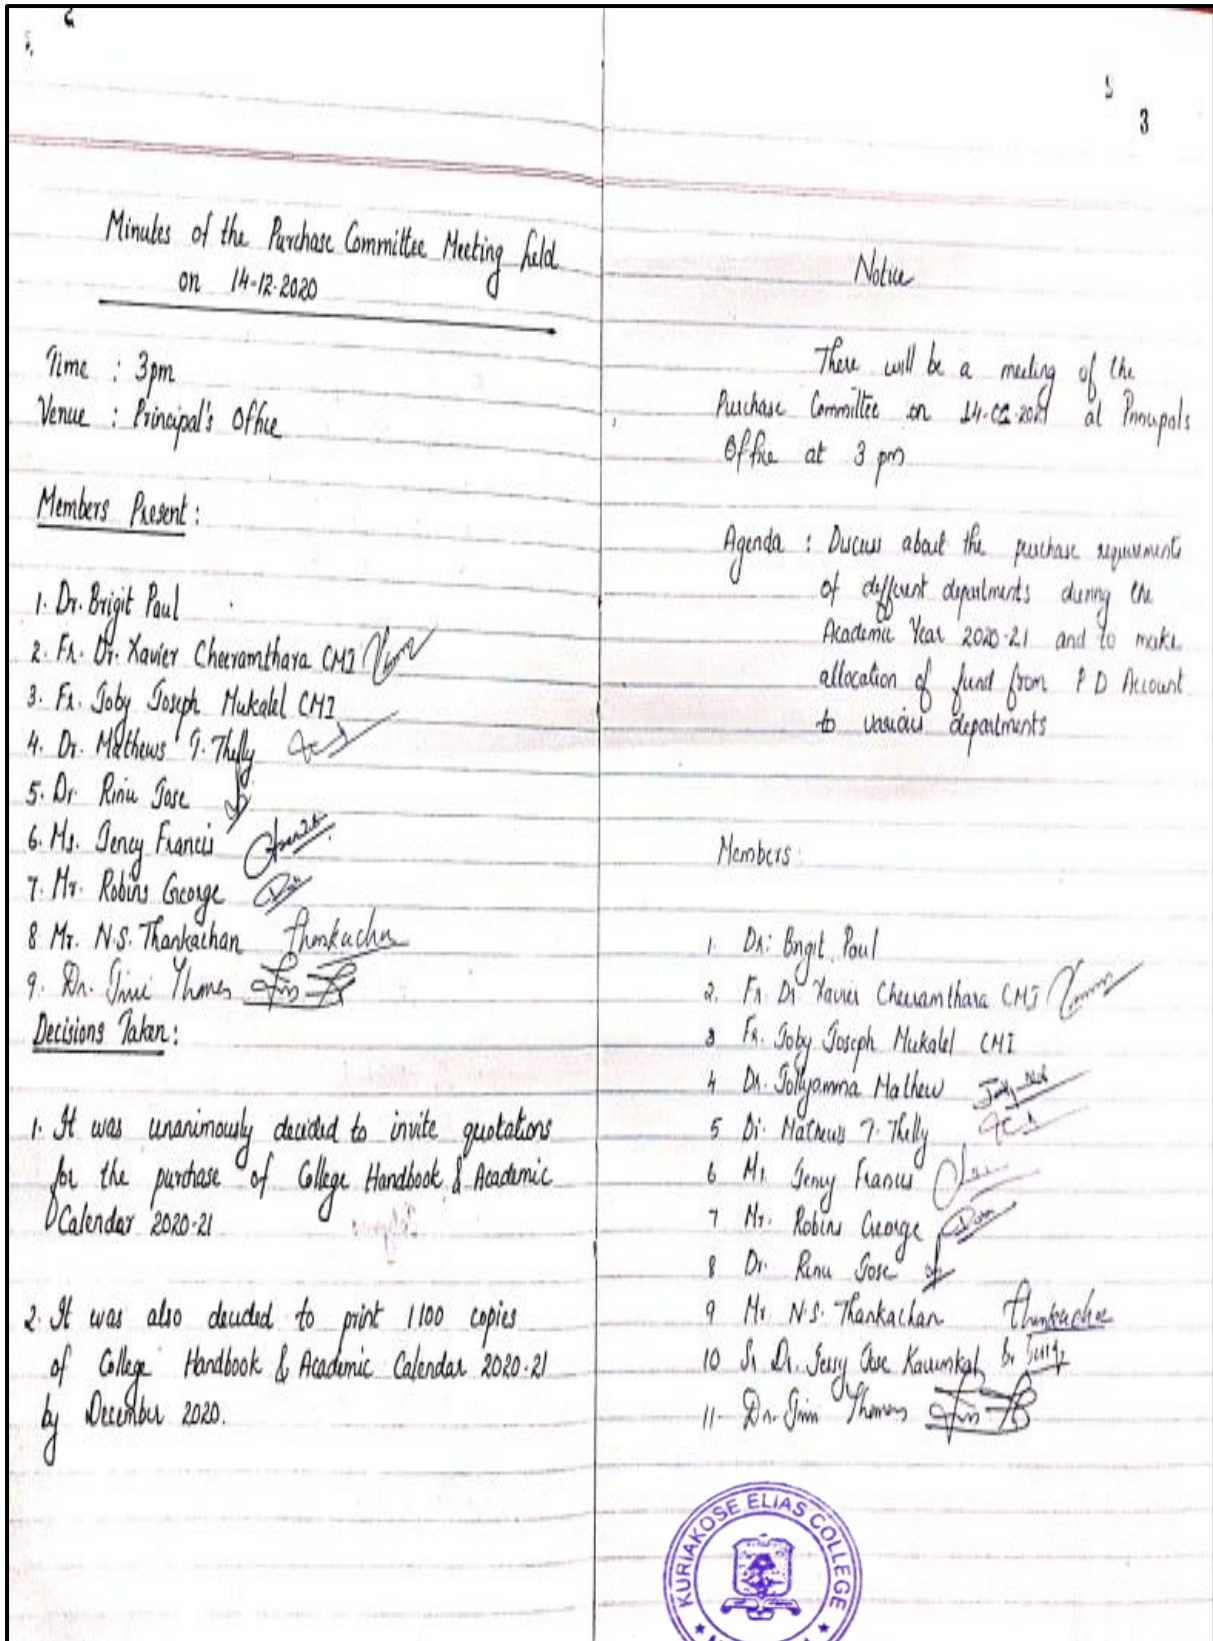 2
Minutes of the Purchase Committee Meeting held
on 14-12-2020
Time : 3pm
Venue : Principal's Office
Members Present :
1. Dr. Brigit Paul
2. Fr. Dr. Xavier Cheeramthara CMI
3. Fr. Joby Joseph Mukalel CMI
4. Dr. Mathews T. Thelly
5. Dr Rinu Jose
6. Ms. Jency Francis
7. Mr. Robins George
8 Mr. N.S. Thankachan Thankachan
9. Dr. Jini Thomas
Decisions Taken :
1. It was unanimously decided to invite quotations
for the purchase of College Handbook & Academic
Calendar 2020-21
2. It was also decided to print 1100 copies
of College Handbook & Academic Calendar 2020-21
by December 2020.
3
Notice
There will be a meeting of the
Purchase Committee on 14-02-2021 at Principals
Office at 3 pm
Agenda : Discuss about the purchase requirements
of different departments during the
Academic Year 2020-21 and to make
allocation of fund from P D Account
to various departments
Members :
1. Dr. Brigit Paul
2. Fr. Dr Xavier Cheeramthara CMI
3 Fr. Joby Joseph Mukalel CMI
4 Dr. Jollyamma Mathew
5 Dr. Mathews T. Thelly
6 Ms Jency Francis
7 Mr. Robins George
8 Dr. Rinu Jose
9 Mr. N.S. Thankachan Thankachan
10 Sr. Dr. Jessy Jose Kavumkal Sr Jessy
11. Dr. Jini Thomas
KURIAKOSE ELIAS COLLEGE